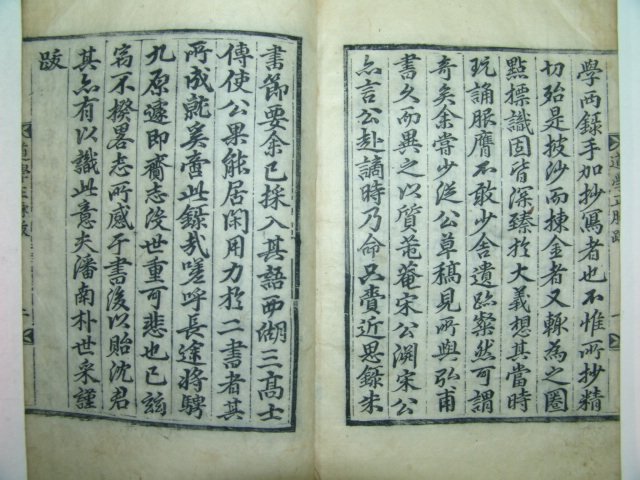 學两錄手加抄寫者也不惟所抄精
切殆是披沙而揀金者又輒為之圈
點標識固皆深臻於大義想其當時
玩誦眼膺不敢少舍遺跡粲然可謂
奇矣余嘗少從公草稿見所與弘甫
書久而異之以質菴宋公淵宋公
亦言公赴謫時乃命只賷近思錄朱
書節要余已採入其語西湖三高士
傳使公果能居閑用力於二書者其
所成就奚啻此錄哉嗟呼長途將騁
九原遽即齎志沒世重可悲也已玆
寫不揆畧志所感于書後以貽沈君
其亦有以識此意夫潘南朴世采謹
跋